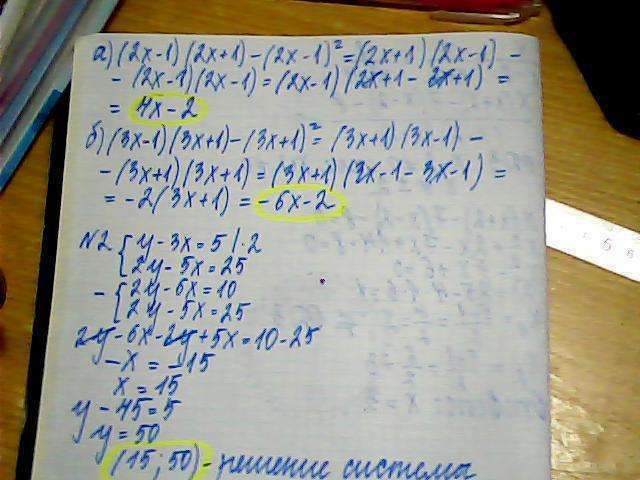 а) (2x-1)(2x+1)-(2x-1)²=(2x+1)(2x-1)-
-(2x-1)(2x-1)=(2x-1)(2x+1-2x+1)=
= 4x-2
б) (3x-1)(3x+1)-(3x+1)²=(3x+1)(3x-1)-
-(3x+1)(3x+1)=(3x+1)(3x-1-3x-1)=
= -2(3x+1)=-6x-2
N2 { y-3x=5 |·2
2y-5x=25
- { 2y-6x=10
2y-5x=25
2y-6x-2y+5x=10-25
-x=-15
x=15
y-45=5
y=50
(15;50)-решение системы